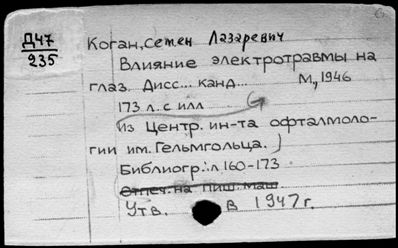 Д47
235
Коган, Семен Лазаревич
Влияние электротравмы на
глаз. Дисс... канд... М., 1946
173 л. с илл
Из Центр. ин-та офталмоло-
гии им. Гельмгольца.)
Библиогр.: л 160-173
Отпеч. на пиш. маш.
Утв. в 1947 г.